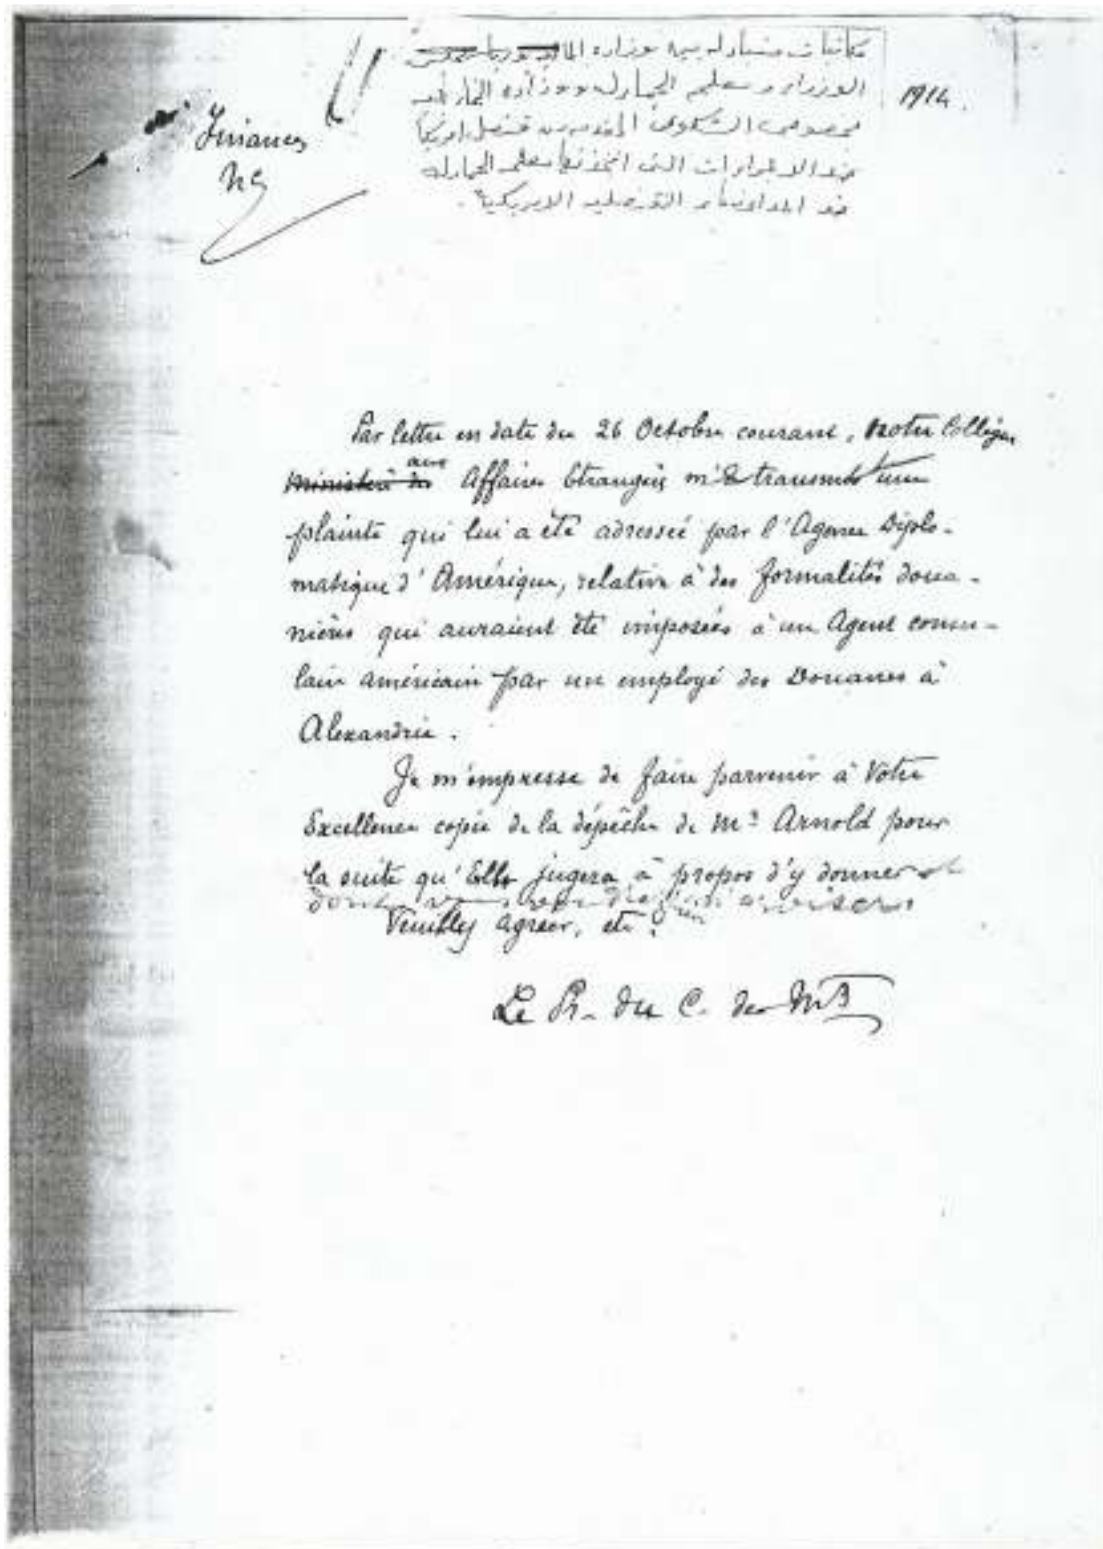 مكاتبات متبادلة بين وزارة المالية
الوزراء ومصلحة الجمارك ووزارة الخارجية
بخصوص الشكوى المقدمة من قنصل امريكا
ضد الاجراءات التى اتخذتها مصلحة الجمارك
ضد القنصلية الامريكية.
1914.
Finances
Par lettre en date du 26 Octobre courant, notre Collègue
Ministère des aux Affaires Etrangères m'a transmis une
plainte qui lui a été adressée par l'Agence Diplo-
matique d'Amérique, relative à des formalités doua-
nières qui auraient été imposées à un Agent consu-
laire américain par un employé des Douanes à
Alexandrie.
Je m'empresse de faire parvenir à Votre
Excellence copie de la dépêche de Mr Arnold pour
la suite qu'Elle jugera à propos d'y donner et
dont vous voudrez bien m'aviser.
Veuillez agréer, etc.
Le Pr. du C. des M